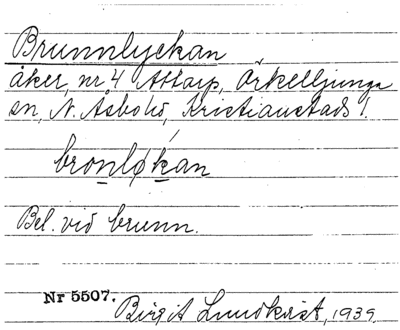 Brunnlyckan
åker, nr 4 Attarp, Örkelljunga
sn, N. Åsbo hd, Kristianstads l.
bronlǿkan
Bel. vid brunn.
Nr 5507.
Birgit Lundkvist, 1939